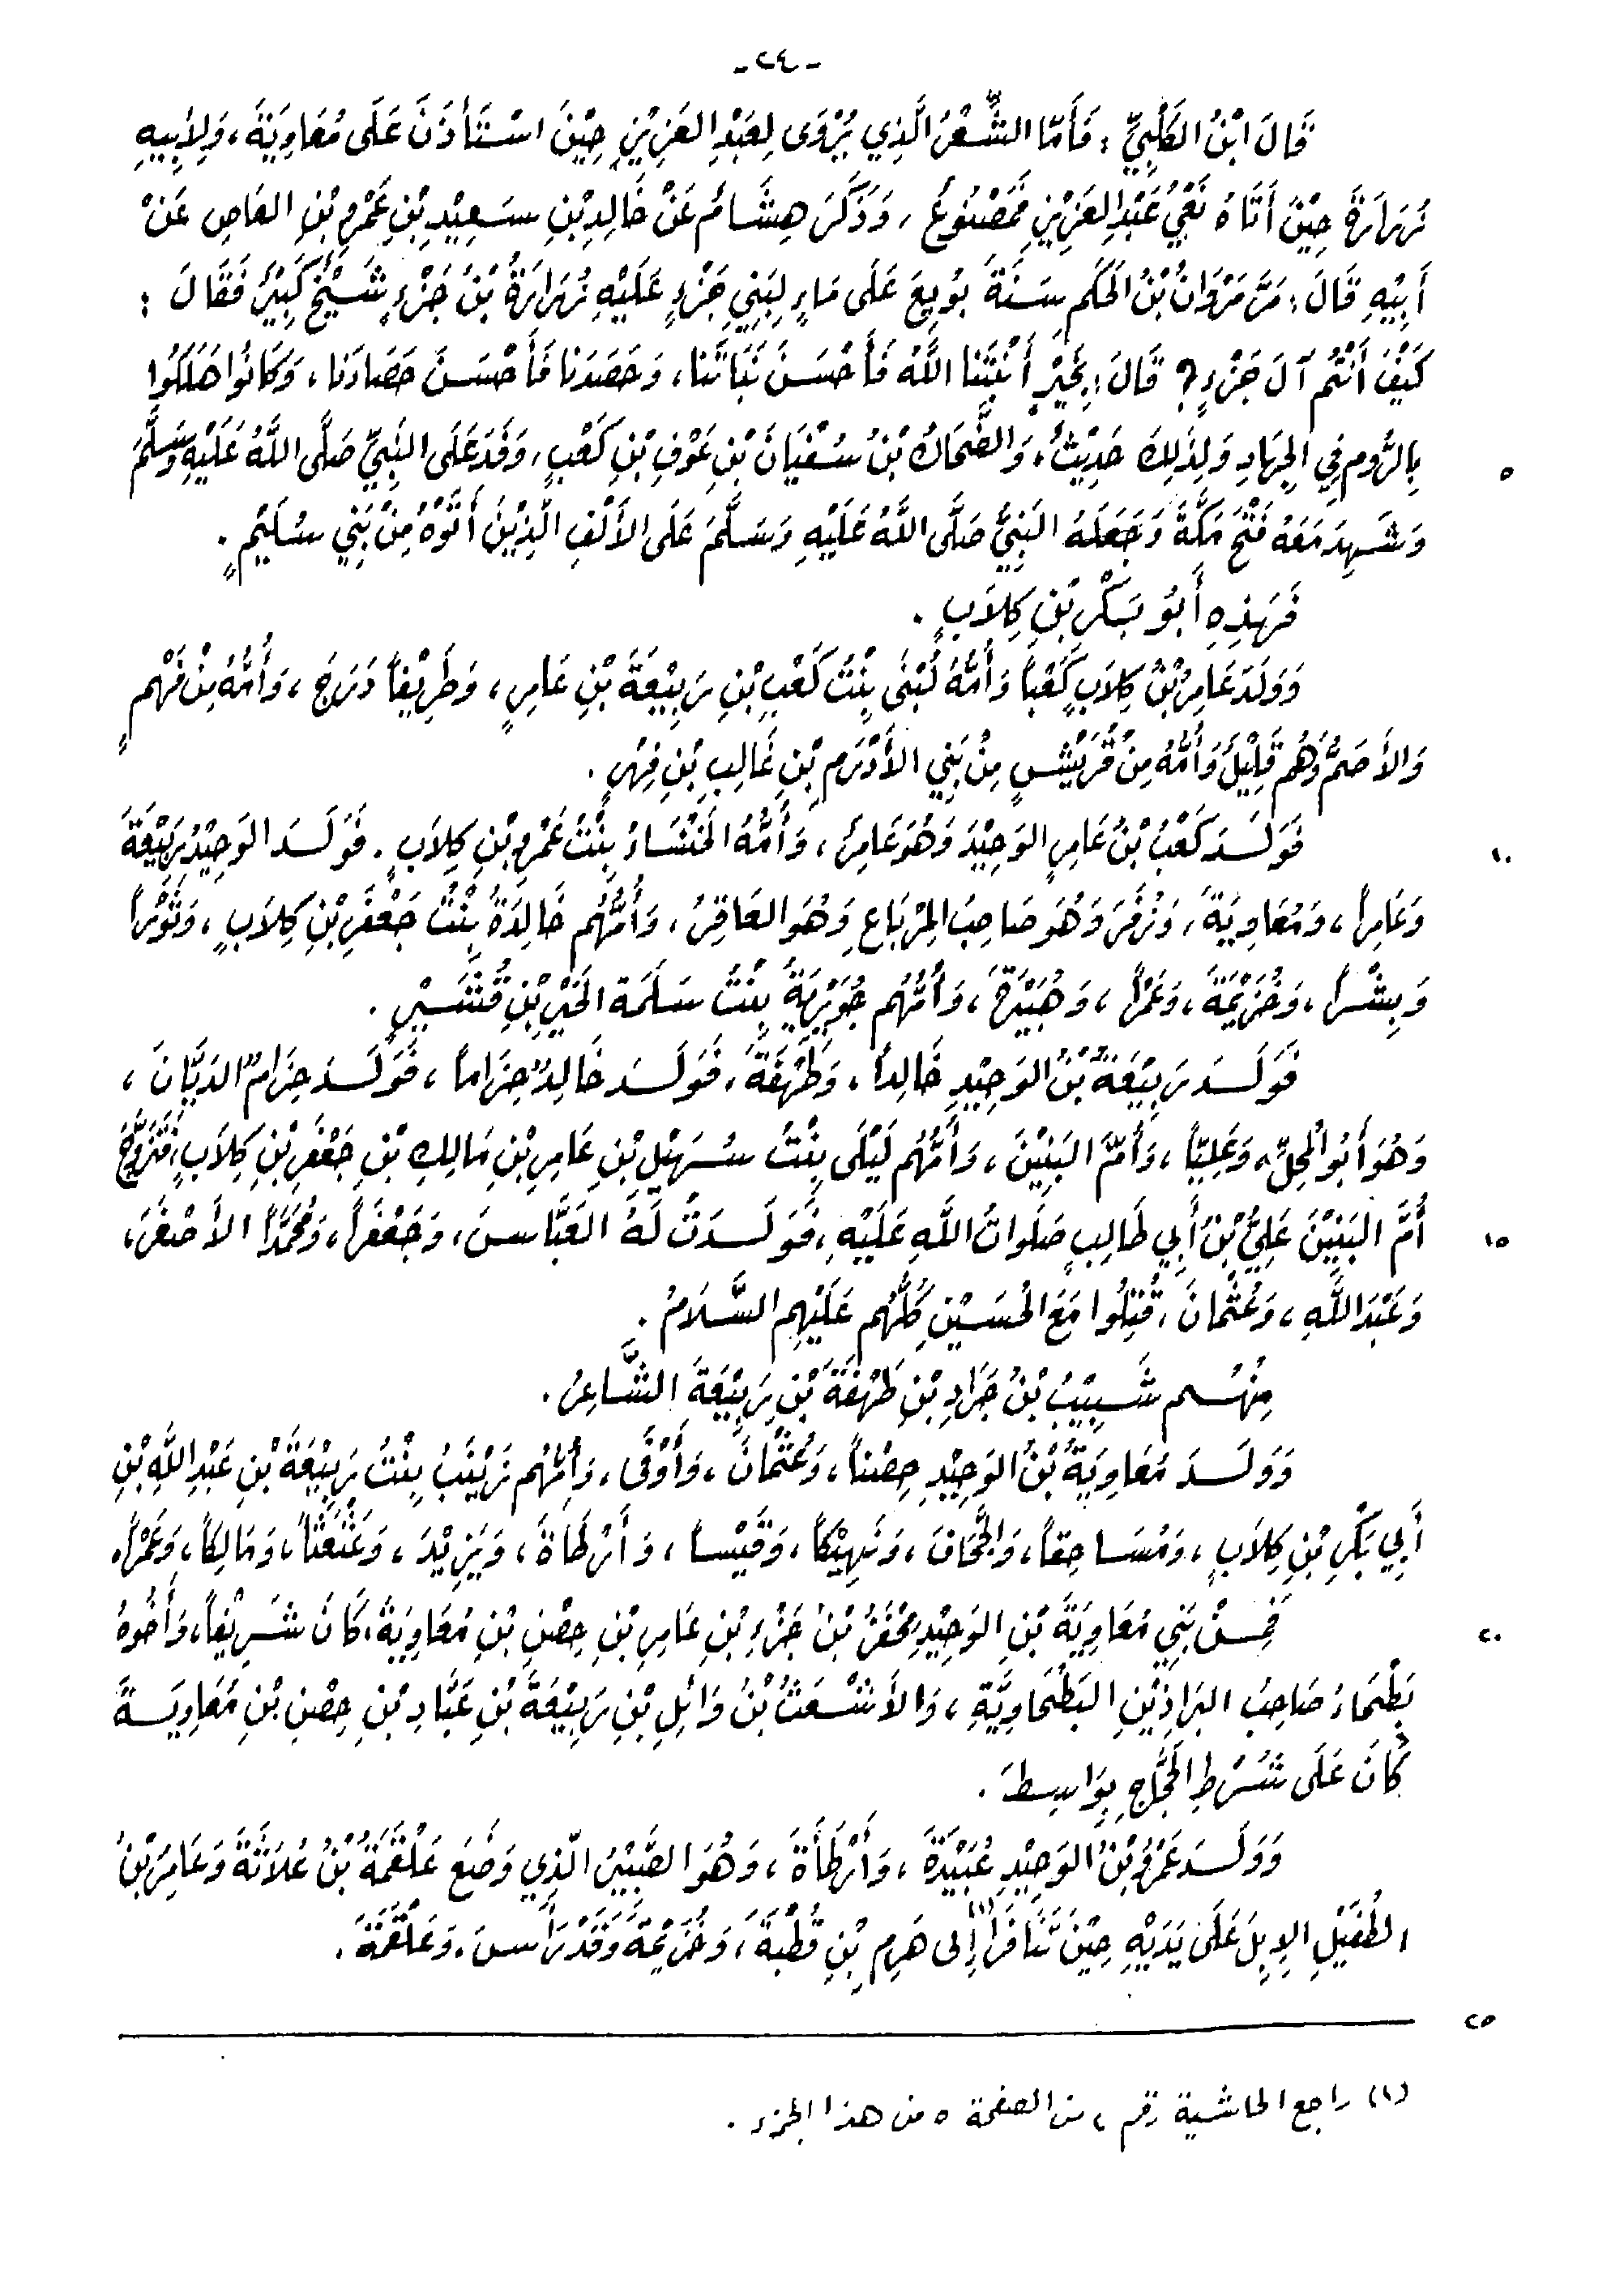 -٢٤-
قَالَ ابْنُ الكَلْبِيِّ : فَأَمَّا الشِّعْرُ الَّذِي يُرْوَى لِعَبْدِ العَزِيْزِ حِيْنَ اسْتَأْذَنَ عَلَى مُعَاوِيَةَ، وَلِأَبِيهِ
زُرَارَةَ حِيْنَ أَتَاهُ نَعْيُ عَبْدِ العَزِيْزِ فَمَصْنُوعٌ ، وَذَكَرَ هِشَامٌ عَنْ خَالِدِ بْنِ سَعِيْدِ بْنِ عَمْرِو بْنِ العَاصِ عَنْ
أَبِيْهِ قَالَ : مَرَّ مَرْوَانُ بْنُ الحَكَمِ سَنَةَ بُويِعَ عَلَى مَاءٍ لِبَنِي جَزْءٍ عَلَيْهِ زُرَارَةُ بْنُ جَزْءٍ شَيْخٌ كَبِيْرٌ فَقَالَ :
كَيْفَ أَنْتُم آلَ جَزْءٍ؟ قَالَ : بِخَيْرٍ أَنْبَتَنَا اللَّهُ فَأَحْسَنَ نَبَاتَنَا، وَحَصَدَنَا فَأَحْسَنَ حَصَادَنَا، وَكَانُوا هَلَكُوا
بِالرُّومِ فِي الجِهَادِ وَلِذَلِكَ حَدِيْثٌ. وَالضَّحَاكُ بْنُ سُفْيَانَ بْنِ عَوْفِ بْنِ كَعْبٍ، وَفَدَ عَلَى النَّبِيِّ صَلَّى اللَّهُ عَلَيْهِ وَسَلَّمَ ٥
وَشَهِدَ مَعَهُ فَتْحَ مَكَّةَ وَجَعَلَهُ النَّبِيُّ صَلَّى اللَّهُ عَلَيْهِ وَسَلَّمَ عَلَى الأَلْفِ الَّذِيْنَ أَتَوْهُ مِنْ بَنِي سُلَيْمٍ .
فَهَذِهِ أَبُو بَكْرِ بْنِ كِلَابٍ .
وَوَلَدَ عَامِرُ بْنُ كِلَابٍ كَعْباً وَأُمُّهُ لُبْنَى بِنْتُ كَعْبِ بْنِ رَبِيْعَةَ بْنِ عَامِرٍ، وَطَرِيْفاً دَرَجَ، وَأُمُّهُ مِنْ فَهْمٍ
وَالأَصَمُّ وَهُم قَلِيْلٌ وَأُمُّهُ مِنْ قُرَيْشٍ مِنْ بَنِي الأَدْرَمِ بْنِ غَالِبِ بْنِ فِهْرٍ .
فَوَلَدَ كَعْبُ بْنُ عَامِرٍ الوَحِيْدَ وَهُوَ عَامِرٌ، وَأُمُّهُ الخَنْسَاءُ بِنْتُ عَمْرِو بْنِ كِلَابٍ. فَوَلَدَ الوَحِيْدُ رَبِيْعَةَ ١٠
وَعَامِراً، وَمُعَاوِيَةَ، وَزُفَرَ وَهُوَ صَاحِبُ المِرْبَاعِ وَهُوَ العَاقِرُ، وَأُمُّهُم خَالِدَةُ بِنْتُ جَعْفَرِ بْنِ كِلَابٍ، وَثَوْراً
وَبِشْراً، وَخُزَيْمَةَ، وَعَمْراً، وَهُبَيْرَةَ، وَأُمُّهُم جُوَيْرِيَةُ بِنْتُ سَلَمَةَ الخَيْرِ بْنِ قُشَيْرٍ .
فَوَلَدَ رَبِيْعَةُ بْنُ الوَحِيْدِ خَالِداً، وَطَهْفَةَ، فَوَلَدَ خَالِدٌ حِزَاماً، فَوَلَدَ حِزَامٌ الدَيَّانَ،
وَهُوَ أَبُو المُحِلِّ، وَعَلِيّاً، وَأُمَّ البَنِيْنَ، وَأُمُّهُم لَيْلَى بِنْتُ سُهَيْلِ بْنِ عَامِرِ بْنِ مَالِكِ بْنِ جَعْفَرِ بْنِ كِلَابٍ، فَتَزَوَّجَ
أُمَّ البَنِيْنَ عَلِيُّ بْنُ أَبِي طَالِبٍ صَلَوَاتُ اللَّهِ عَلَيْهِ، فَوَلَدَتْ لَهُ العَبَّاسَ، وَجَعْفَراً، وَمُحَمَّداً الأَصْغَرَ، ١٥
وَعَبْدَ اللَّهِ، وَعُثْمَانَ، قُتِلُوا مَعَ الحُسَيْنِ كُلُّهُم عَلَيْهِم السَّلَامُ .
مِنْهُم شَبِيْبُ بْنُ جَرَادِ بْنِ طَهْفَةَ بْنِ رَبِيْعَةَ الشَّاعِرُ .
وَوَلَدَ مُعَاوِيَةُ بْنُ الوَحِيْدِ حِصْناً، وَعُثْمَانَ، وَأَوْفَى، وَأُمُّهُم زَيْنَبُ بِنْتُ رَبِيْعَةَ بْنِ عَبْدِ اللَّهِ بْنِ
أَبِي بَكْرِ بْنِ كِلَابٍ، وَمُسَاحِقاً، وَالجَحَّافَ، وَنَهِيْكاً، وَقَيْساً، وَأَرْطَاةَ، وَيَزِيْدَ، وَعَثْعَثاً، وَمَالِكاً، وَعَمْراً.
فَمِنْ بَنِي مُعَاوِيَةَ بْنِ الوَحِيْدِ مُحْفَرُ بْنُ جَزْءِ بْنِ عَامِرِ بْنِ حِصْنِ بْنِ مُعَاوِيَةَ، كَانَ شَرِيْفاً، وَأَخُوهُ ٢٠
بَطْحَاءُ صَاحِبُ البَرَاذِيْنِ البَطْحَاوِيَّةِ، وَالأَشْعَثُ بْنُ وَائِلِ بْنِ رَبِيْعَةَ بْنِ عَبَّادِ بْنِ حِصْنِ بْنِ مُعَاوِيَةَ
كَانَ عَلَى شُرَطِ الحَجَّاجِ بِوَاسِطَ .
وَوَلَدَ عَمْرُو بْنُ الوَحِيْدِ عُبَيْدَةَ، وَأَرْطَأَةَ، وَهُوَ الصَّبِيْرُ الَّذِي وَضَعَ عَلْقَمَةُ بْنُ عُلَاثَةَ وَعَامِرُ بْنُ
الطُّفَيْلِ الإِبِلَ عَلَى يَدَيْهِ حِيْنَ تَنَافَرَا(١) إِلَى هَرِمِ بْنِ قُطْبَةَ، وَخُزَيْمَةَ وَقَدْ رَأَسَ. وَعَلْقَمَةَ.
٢٥
(١) راجع الحاشية رقم ، من الصفحة ٥ من هذا الجزء .